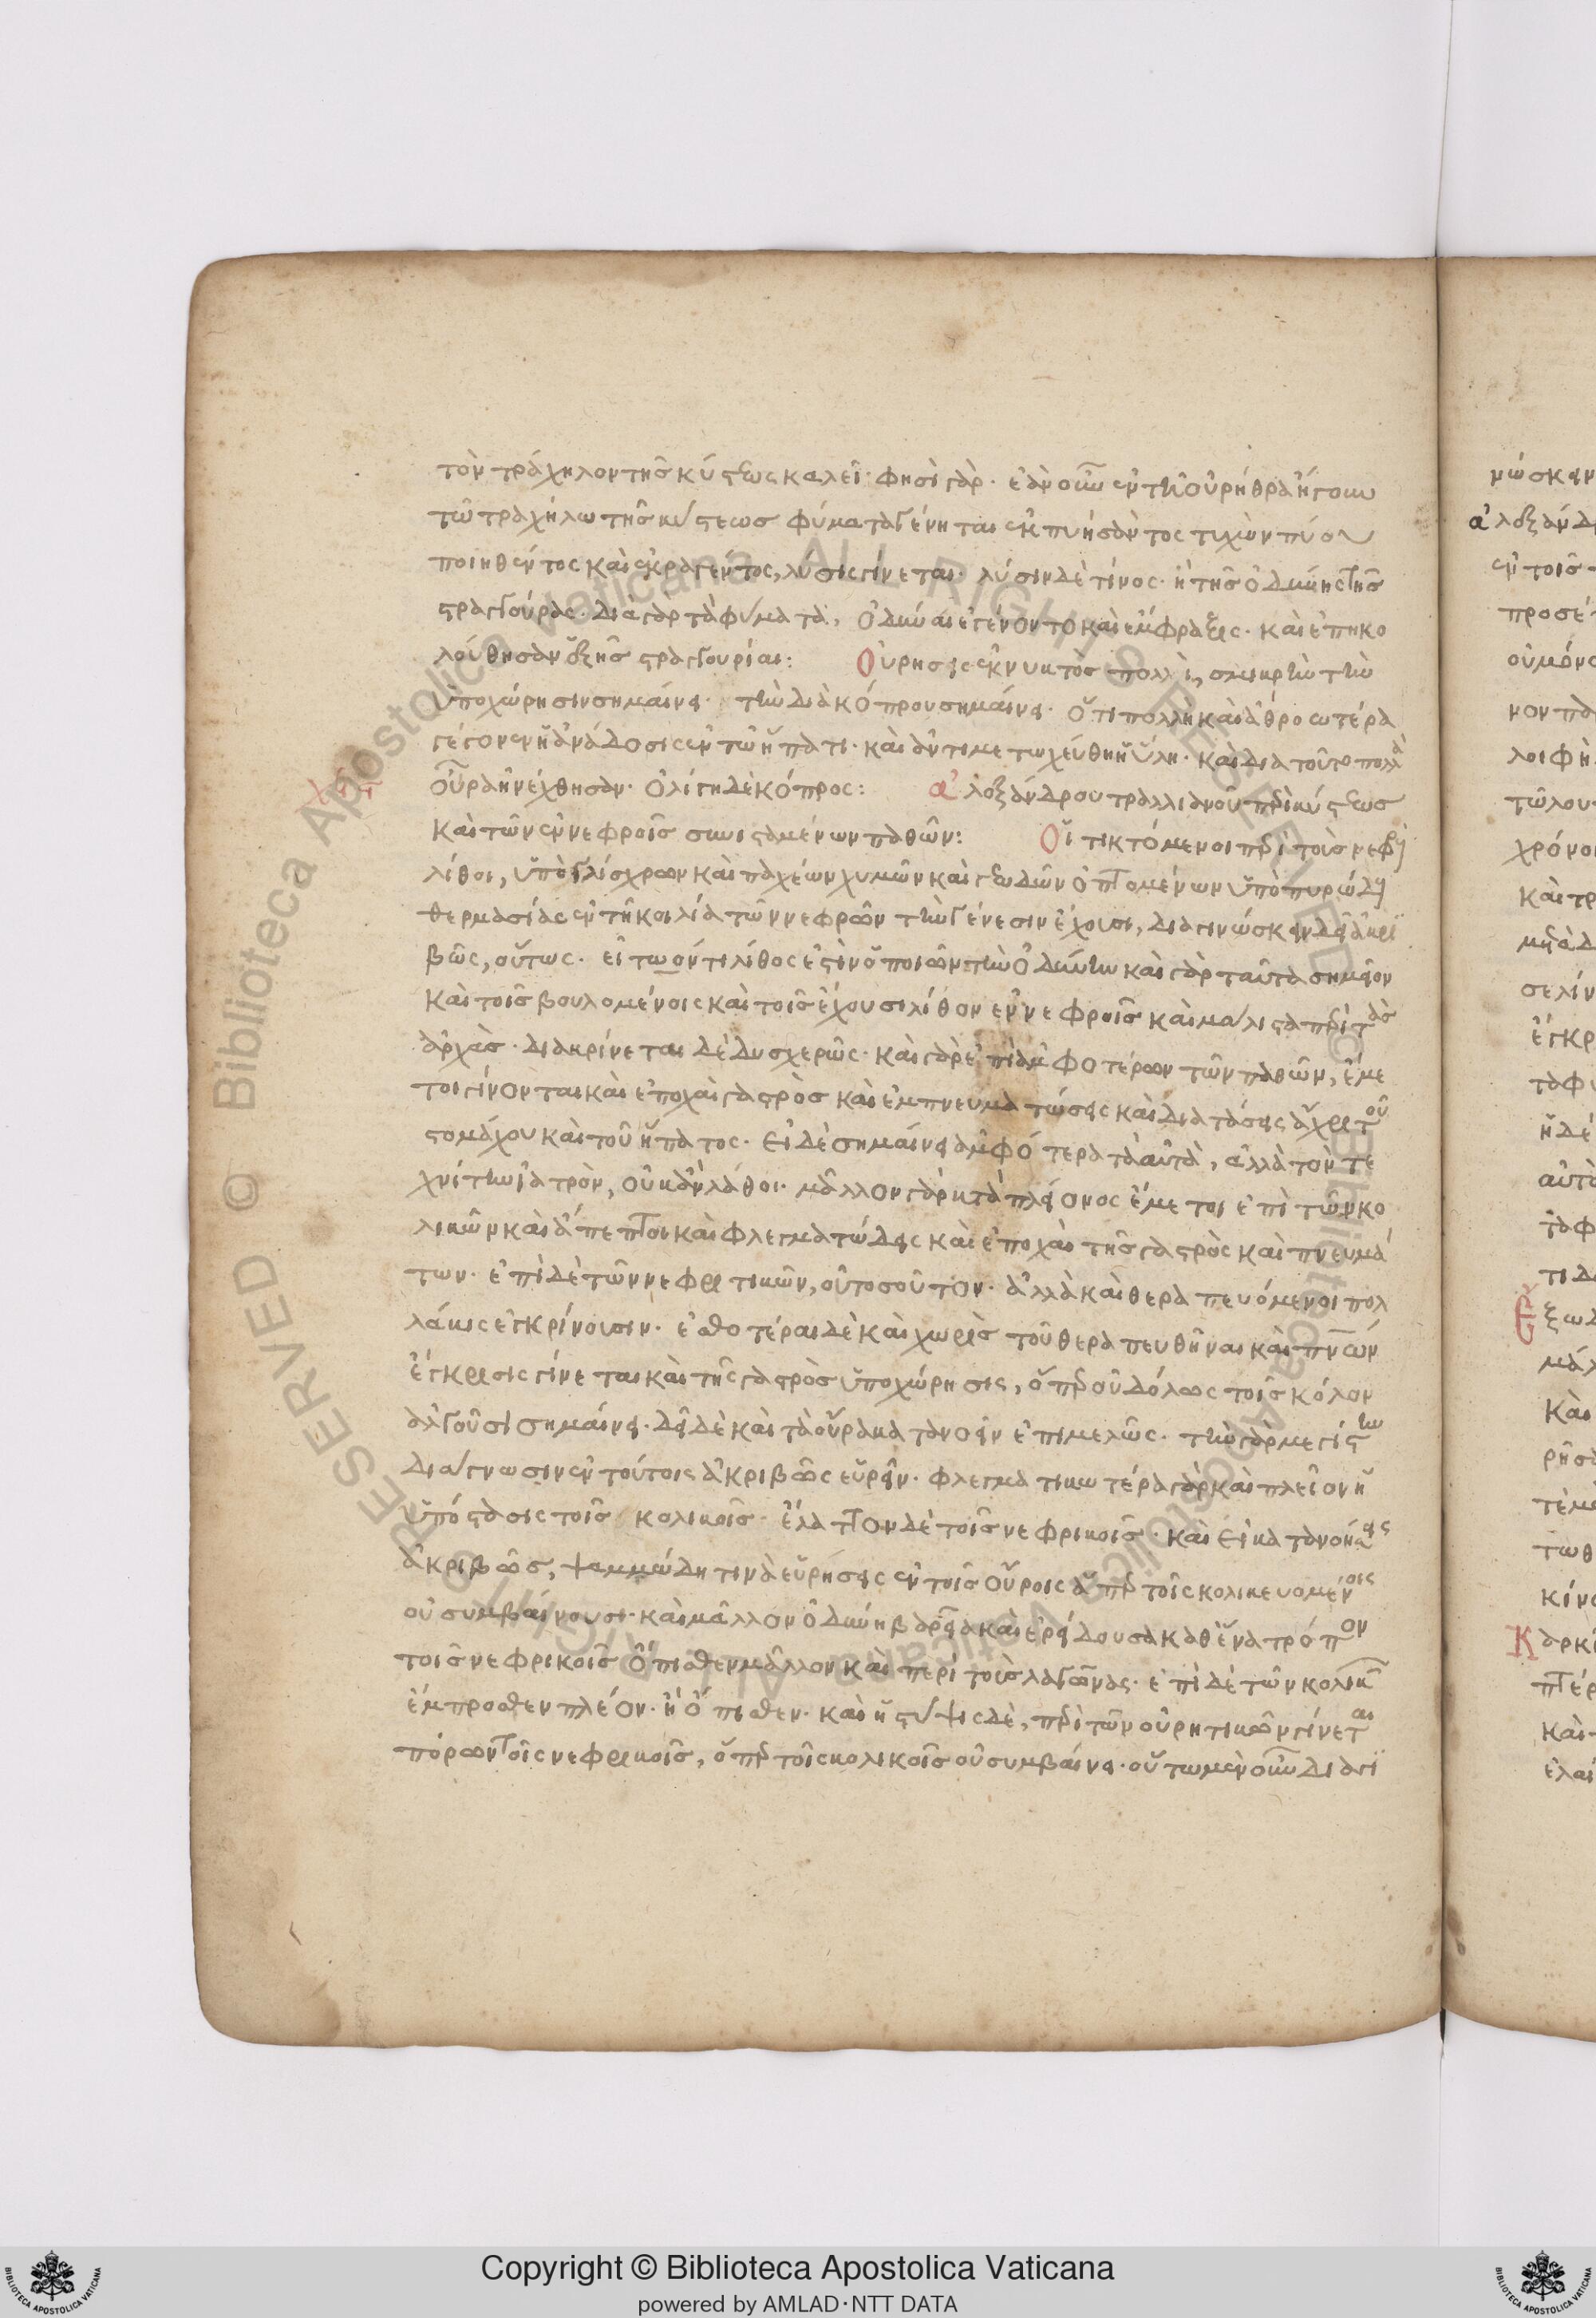 τὸν τράχηλον τῆς κύστεως καλεῖ· φησὶ γὰρ· ἐὰν οὖν ἐν τῆ οὐρήθρα ἤγουν
τῶ τραχήλω τῆς κύστεως φύματα γένηται ἐκπυήσαντος τυχὸν πύου
ποιηθέντος καὶ ἐκραγέντος, λύσις γίνεται· λύσιν δὲ τίνος· ἢ τῆς ὀδύνης τῆς
στραγγούρας· διὰ γὰρ τὰ φύματα, ὀδύναι ἐγένοντο καὶ ἐμφράξεις· καὶ ἐπηκο
λούθησαν ἐξ ἧς στραγγουρίαι: Οὔρησις ἐκ νυκτὸς πολλὴ, σμικρὴν τὴν
ὑποχώρησιν σημαίνει· τὴν διὰ κόπρου σημαίνει· ὅτι πολλὴ καὶ ἀθροωτέρα
γέγονεν ἡ ἀνάδοσις ἐν τῶ ἥπατι· καὶ ἀντιμετωχεύθη ἡ ὕλη· καὶ δια τοῦτο πολλὰ
οὖρα ἠνέχθησαν· ὀλίγη δὲ κόπρος: ἀλεξάνδρου τραλλιανοῦ περὶ κύστεως
καὶ τῶν ἐν νεφροῖς συνισταμένων παθῶν: Οἱ τικτόμενοι περὶ τοὺς νεφροὺς
λίθοι, ὑπὸ γλίσχρων καὶ παχέων χυμῶν καὶ γεωδῶν ὀπτομένων ὑπὸ πυρώδους
θερμασίας ἐν τῆ κοιλία τῶν νεφρῶν τὴν γένεσιν ἔχουσι, διαγινώσκειν δεῖ ἀκρι
βῶς, οὕτως· εἰ τω όντι λίθος ἐστὶν ὁ ποιῶν τὴν ὀδύνην καὶ γὰρ ταῦτα σημεῖον
καὶ τοῖς βουλομένοις καὶ τοῖς ἔχουσι λίθον ἐν νεφροῖς καὶ μάλιστα περὶ τὰς
ἀρχάς· διακρίνεται δὲ δυσχερῶς· καὶ γὰρ ἐπὶ ἀμφοτέρων τῶν παθῶν, ἔμε
τοι γίνονται καὶ ἐποχαὶ γαστρὸς καὶ ἐμπνευματώσεις καὶ διατάσεις ἄχρι τοῦ
στομάχου καὶ τοῦ ἥπατος· εἰ δὲ σημαίνει ἀμφότερα τὰ αὐτὰ, ἀλλὰ τὸν τε
χνίτην ἰατρὸν, οὐκ ἂν λάθοι· μᾶλλον γὰρ κατὰ πλείονος ἔμετοι ἐπὶ τῶν κο
λικῶν καὶ ἄπεπτοι καὶ φλεγματώδεις καὶ ἐποχαὶ τῆς γαστρὸς καὶ πνευμά
των· ἐπὶ δὲ τῶν νεφριτικῶν, οὐ τοσοῦτον· ἀλλὰ καὶ θεραπευόμενοι πολ
λάκις ἐγκρίνουσιν· ἔσθ᾽ ότέραι δὲ καὶ χωρὶς τοῦ θεραπευθῆναι καὶ πνῶν
ἔγκρισις γίνεται καὶ τῆς γαστρὸς ὑποχώρησις, ὅπερ οὐδόλως τοῖς κόλον
ἀλγοῦσι σημαίνει· δεῖ δὲ καὶ τὰ οὖρα κατανοεῖν ἐπιμελῶς· τὴν γὰρ μεγίστην
διάγνωσιν ἐν τούτοις ἀκριβῶς εὑρεῖν· φλεγματικωτέρα γὰρ καὶ πλεῖον ἡ
ὑπόστασις τοῖς κολικοῖς· ἔλαττον δὲ τοῖς νεφρικοῖς· καὶ εἰ κατανοήσεις
ἀκριβῶς, ψαμμώδη τινὰ εὑρήσεις ἐν τοῖς οὔροις ἅπερ τοῖς κολικευομένοις
οὐ συμβαίνουσι· καὶ μᾶλλον ὀδύνη βαρεῖα καὶ ἐρείδουσα καθ᾽ ἕνα τρόπον
τοῖς νεφρικοῖς ὄπισθεν μᾶλλον καὶ περὶ τοὺς λαγῶνας· ἐπὶ δὲ τῶν κολικῶν
ἔμπροσθεν πλέον· ἢ ὄπισθεν· καὶ ἡ στύψις δὲ, περὶ τῶν οὐρητικῶν γίνεται
πόρων τοῖς νεφρικοῖς, ὅπερ τοῖς κολικοῖς οὐ συμβαίνει· οὕτω μὲν οὖν διαγι
Copyright © Biblioteca Apostolica Vaticana
powered by AMLAD·NTT DATA